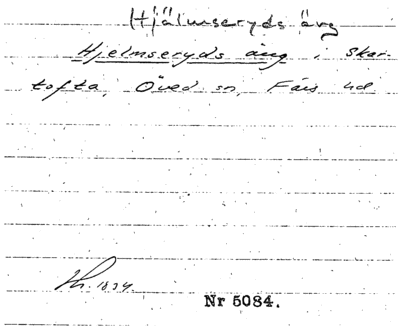 Hjälmseryds äng
Hjelmseryds äng i Skar-
tofta, Öved sn, Färs hd
1834.
Nr 5084.